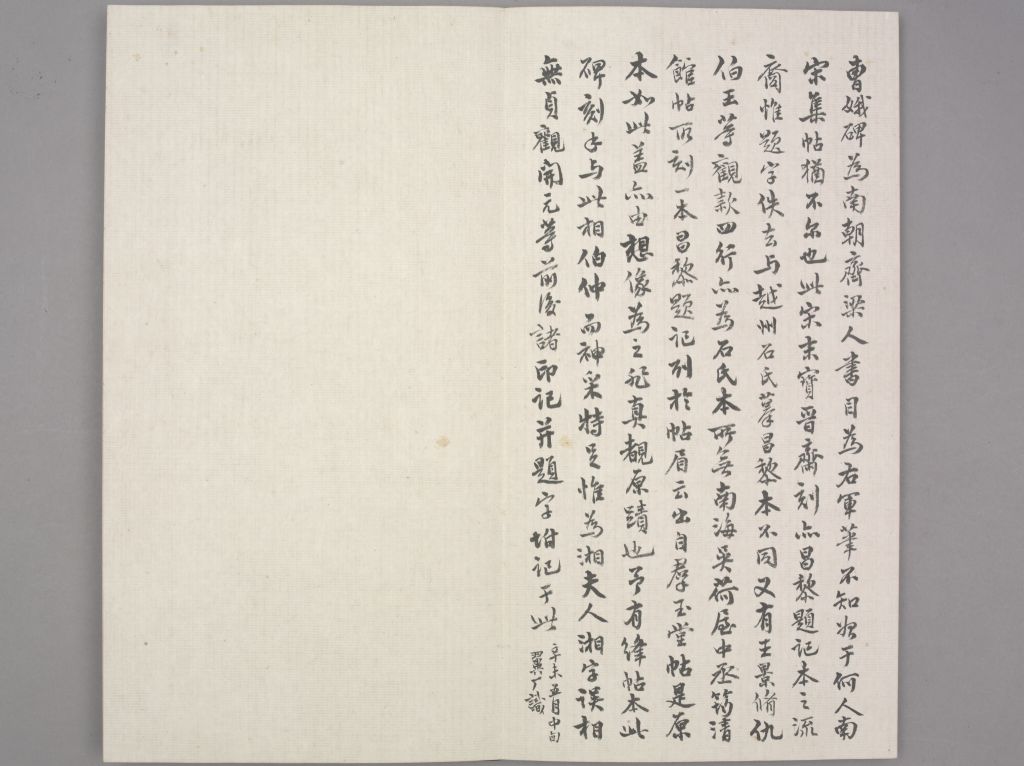 曹娥碑為南朝齊梁人書目為右軍筆不知始于何人南
宋集帖猶不尔也此宋末寶晉齋刻亦昌黎題記本之流
裔惟題字佚去与越州石氏摹昌黎本不同又有王景脩仇
伯玉等觀款四行亦為石氏本所無南海吳荷屋中丞筠清
館帖所刻一本昌黎題記列於帖眉云出自羣玉堂帖是原
本如此蓋亦由想像為之非真覩原蹟也予有絳帖本此
碑刻手与此相伯仲而神采特足惟為湘夫人湘字误相
無貞觀開元等前後諸印記并題字坿記于此
辛未五月中旬
翼厂識